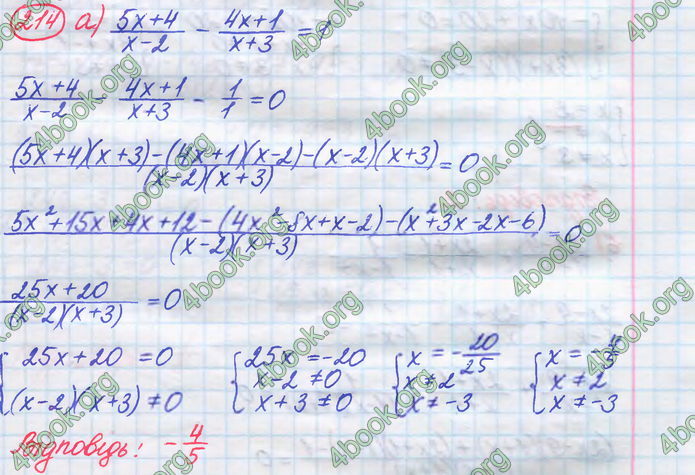 214 а) (5x+4)/(x-2) - (4x+1)/(x+3) = 1
(5x+4)/(x-2) - (4x+1)/(x+3) - 1/1 = 0
((5x+4)(x+3)-(4x+1)(x-2)-(x-2)(x+3))/((x-2)(x+3)) = 0
(5x²+15x+4x+12-(4x²-8x+x-2)-(x²+3x-2x-6))/((x-2)(x+3)) = 0
(25x+20)/((x-2)(x+3)) = 0
{25x+20 = 0 (x-2)(x+3) ≠ 0 {25x = -20 x-2 ≠ 0 x+3 ≠ 0 {x = -20/25 x ≠ 2 x ≠ -3 {x = -4/5 x ≠ 2 x ≠ -3
Відповідь: -4/5
4book.org